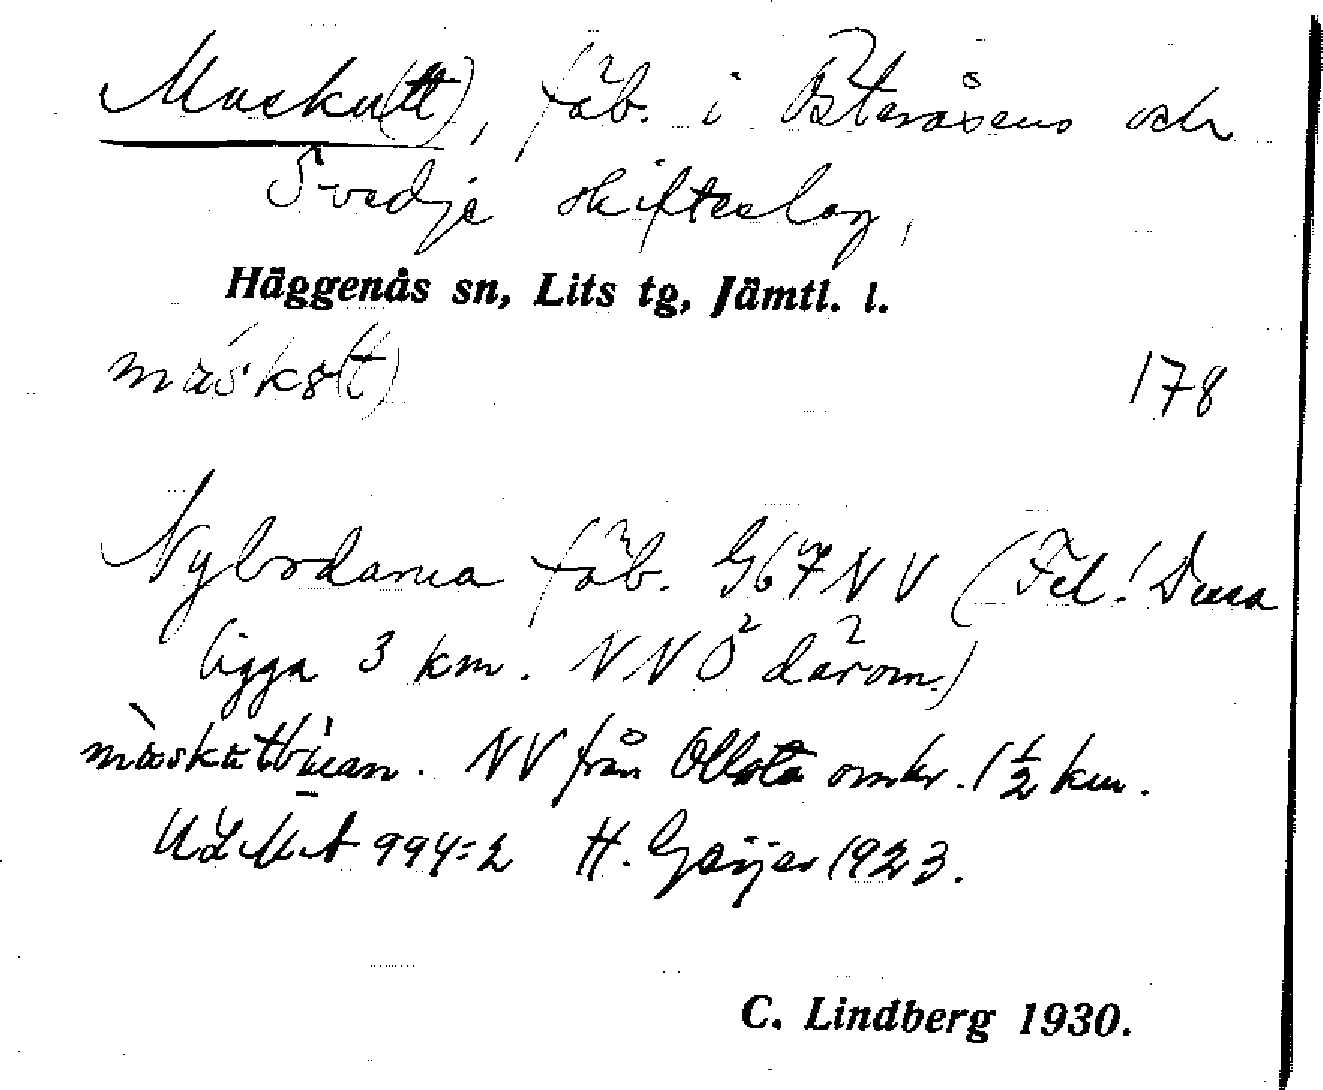 Musku(tt), fäb. i Österåsens och
Svedje skifteslag,
Häggenås sn, Lits tg, Jämtl. l.
178
Nybodarna fäb. Gb 7 NV (Fel! Dessa
ligga 3 km. NNÖ därom.)
NV från Ollsta omkr. 1 1/2 km.
ULMA 994:2 H. Geijer 1923.
C. Lindberg 1930.